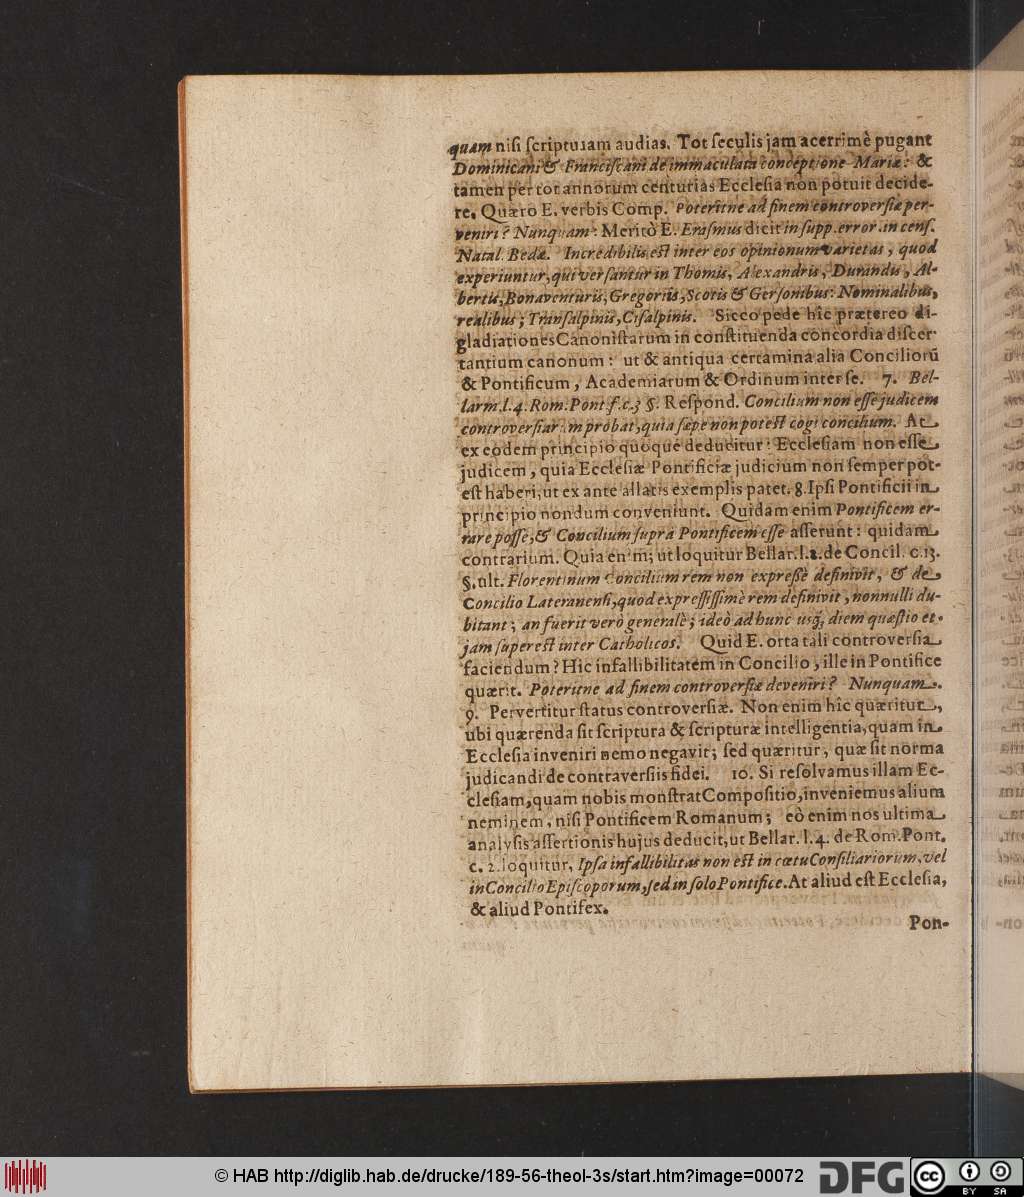 quam nisi scripturam audias. Tot seculis jam acerrimè pugant
Dominicani & Franciscani de immaculata conceptione Mariæ: &
tamen per tot annorum centurias Ecclesia non potuit decide-
re. Quæro E. verbis Comp. Poteritne ad finem controversiæ per-
veniri? Nunquam: Meritò E. Erasmus dicit in supp. error. in cens.
Natal. Bedæ. Incredibilis est inter eos opinionum varietas, quod
experiuntur, qui versantur in Thomis, Alexandris, Durandis, Al-
bertis, Bonaventuris, Gregoriis, Scotis & Gersonibus: Nominalibus,
realibus; Transalpinis, Cisalpinis. Sicco pede hîc prætereo di-
gladiationes Canonistarum in constituenda concordia discer-
tantium canonum: ut & antiqua certamina alia Conciliorũ
& Pontificum, Academiarum & Ordinum inter se. 7. Bel-
larm. l. 4. Rom. Pont. f. c. 3 §. Respond. Concilium non esse judicem
controversiarum probat, quia sæpe non potest cogi concilium. At
ex eodem principio quoque deducitur: Ecclesiam non esse
judicem, quia Ecclesiæ Pontificiæ judicium non semper pot-
est haberi, ut ex ante allatis exemplis patet. 8. Ipsi Pontificii in
principio nondum conveniunt. Quidam enim Pontificem er-
rare posse, & Concilium supra Pontificem esse asserunt: quidam
contrarium. Quia enim, ut loquitur Bellar. l. 2. de Concil. c. 13.
§. ult. Florentinum Concilium rem non expreßè definivit, & de
Concilio Lateranensi, quod expressissimè rem definivit, nonnulli du-
bitant; an fuerit verò generale; ideò ad hunc usq́; diem quæstio et-
jam superest inter Catholicos. Quid E. orta tali controversia
faciendum? Hic infallibilitatem in Concilio, ille in Pontifice
quærit. Poteritne ad finem controversiæ deveniri? Nunquam.
9. Pervertitur status controversiæ. Non enim hîc quæritur,
ubi quærenda sit scriptura & scripturæ intelligentia, quam in
Ecclesia inveniri nemo negavit; sed quæritur, quæ sit norma
judicandi de contraversiis fidei. 10. Si resolvamus illam Ec-
clesiam, quam nobis monstrat Compositio, inveniemus alium
neminem, nisi Pontificem Romanum; eò enim nos ultima
analysis assertionis hujus deducit, ut Bellar. l. 4. de Rom. Pont.
c. 2. loquitur, Ipsa infallibilitas non est in cœtu Consiliariorum, vel
in Concilio Episcoporum, sed in solo Pontifice. At aliud est Ecclesia,
& aliud Pontifex.
Pon-
© HAB http://diglib.hab.de/drucke/189-56-theol-3s/start.htm?image=00072
DFG
cc BY SA